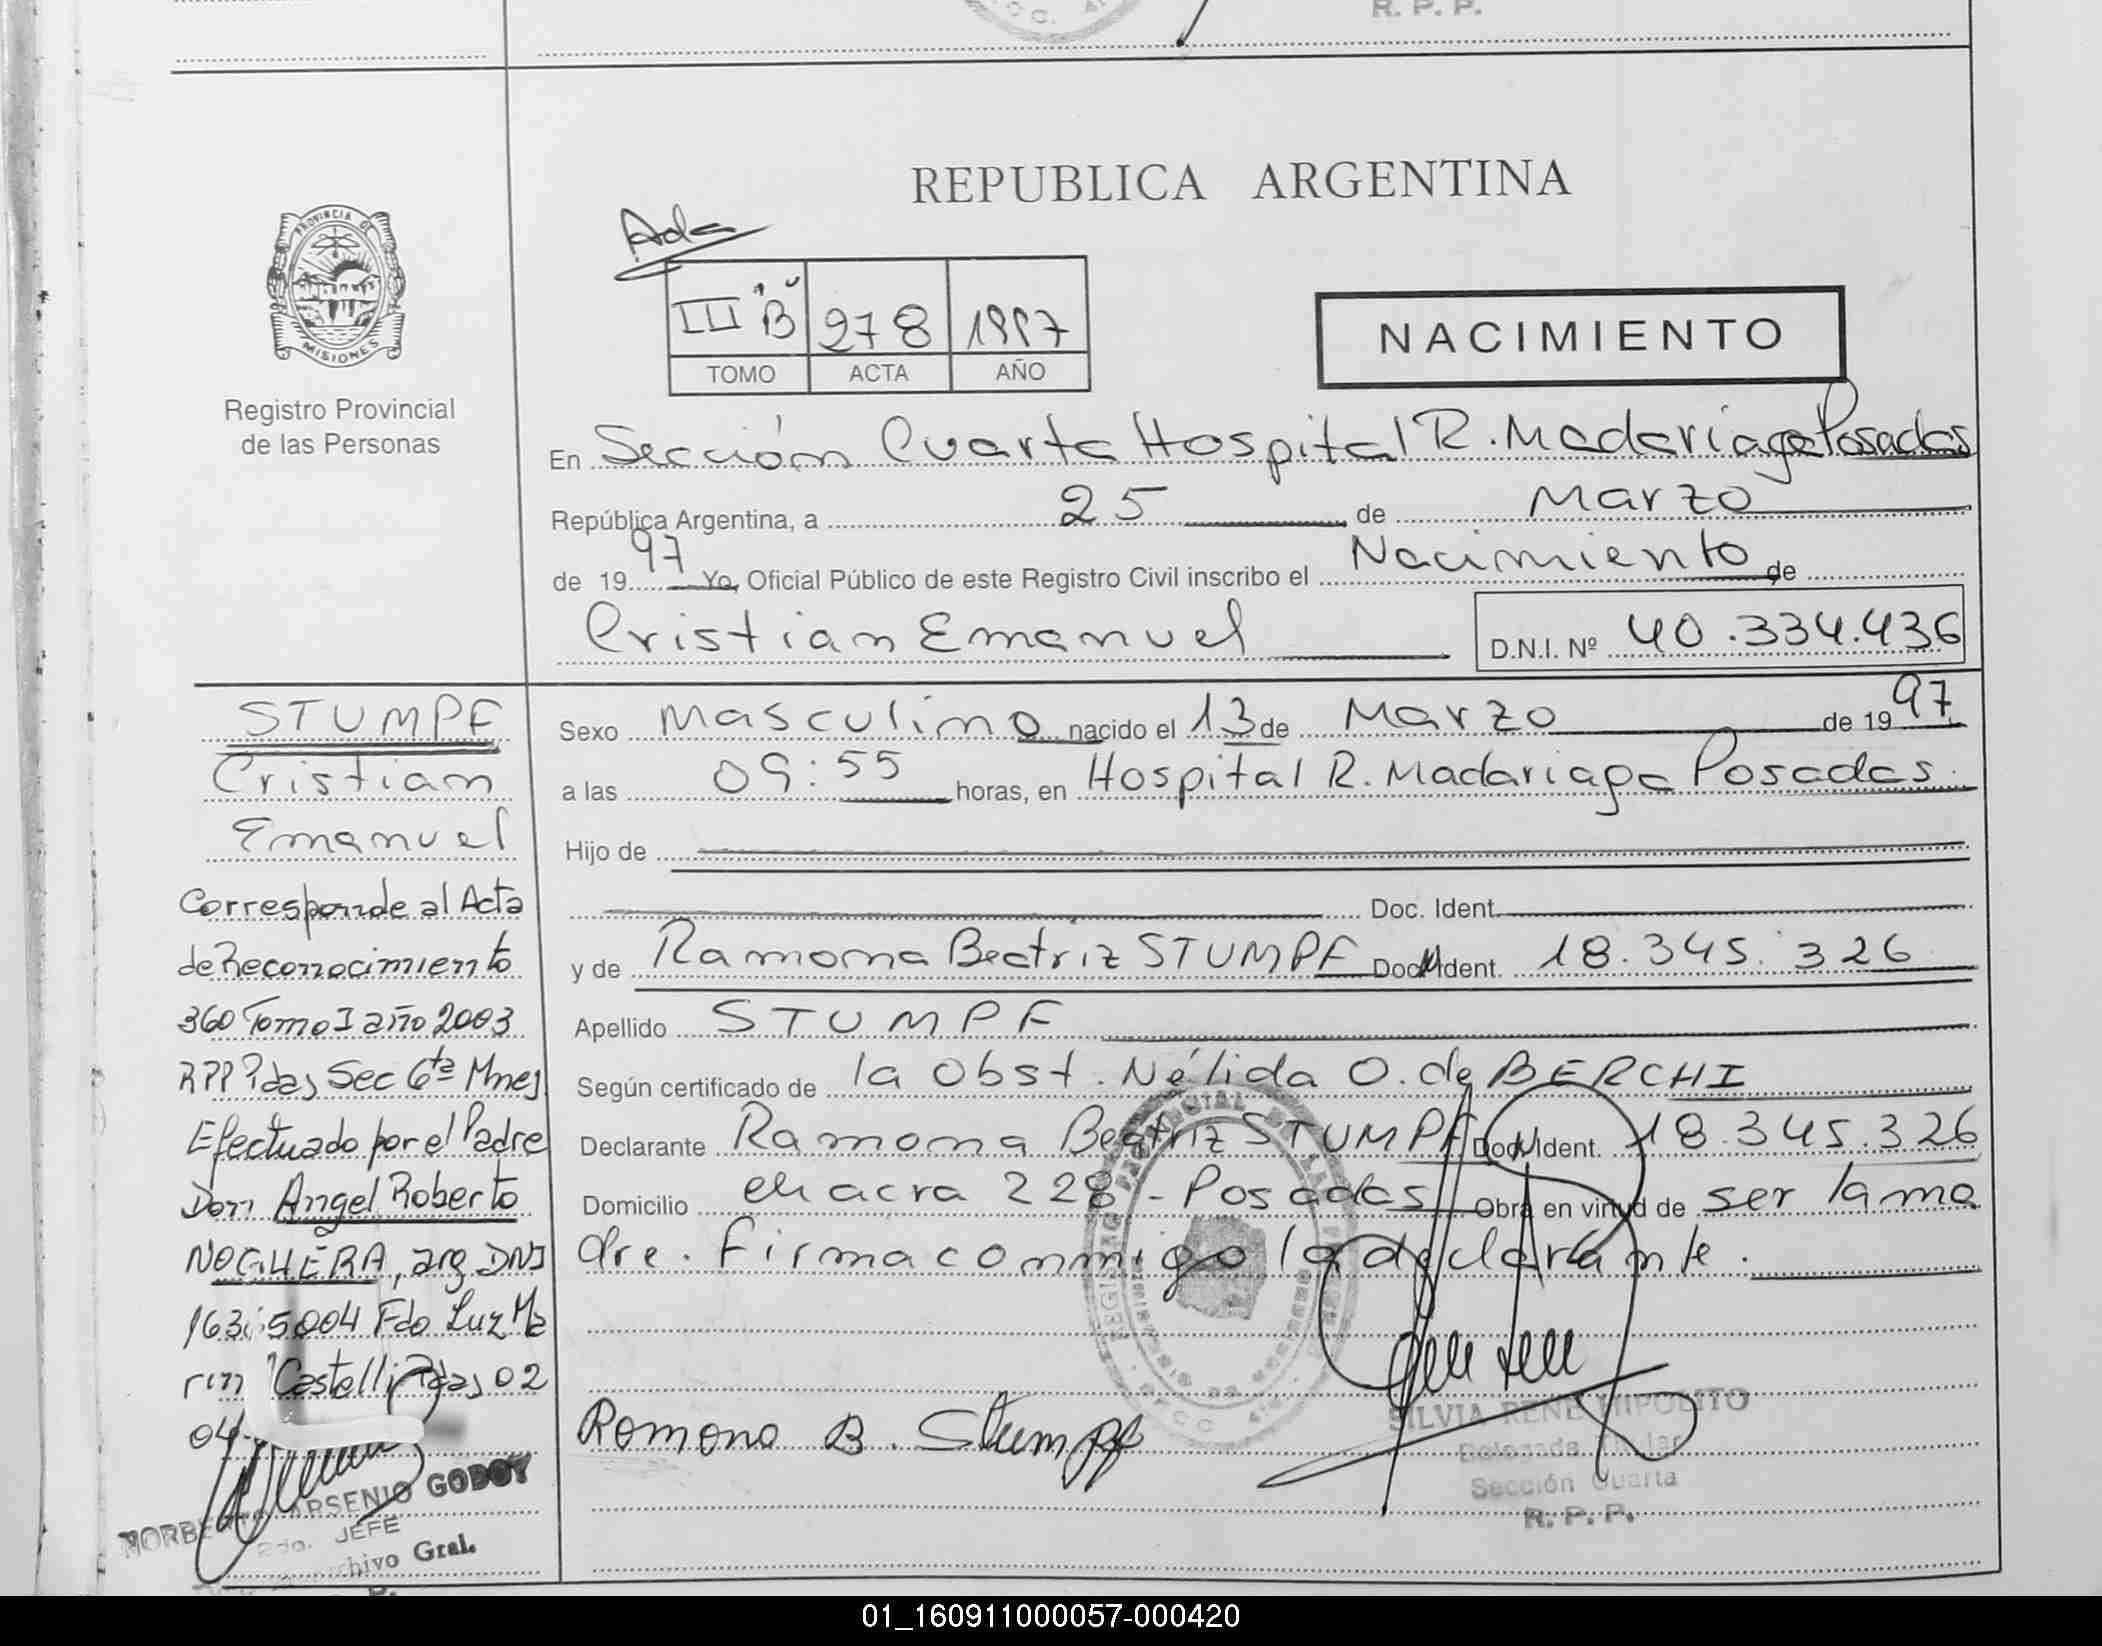 R. P. P.
REPUBLICA ARGENTINA
PROVINCIA DE
MISIONES
Registro Provincial
de las Personas
III "B" 278 1997
TOMO ACTA AÑO
NACIMIENTO
En Sección Cuarta Hospital R. Madariaga Posadas
República Argentina, a 25 de Marzo
de 1997 Yo, Oficial Público de este Registro Civil inscribo el Nacimiento de
Cristian Emanuel D.N.I. Nº 40.334.436
STUMPF
Cristian
Emanuel
Corresponde al Acta
de Reconocimiento
360 Tomo I año 2003
RPP Pdas Sec 6ta Mnes
Efectuado por el Padre
Don Angel Roberto
NOGHERA, arg DNI
Fdo Luz Ma
rin Castelli Pdas 02
04
ARSENIO GODOY
JEFE
Archivo Gral.
Sexo Masculino nacido el 13 de Marzo de 1997
a las 09:55 horas, en Hospital R. Madariaga Posadas
Hijo de
Doc. Ident.
y de Ramona Beatriz STUMPF Doc. Ident. 18.345.326
Apellido STUMPF
Según certificado de la Obst. Nélida O. de BERCHI
Declarante Ramona Beatriz STUMPF Doc. Ident. 18.345.326
Domicilio chacra 228 - Posadas Obra en virtud de ser la ma
dre. Firma conmigo la declarante.
Ramona B. Stumpf
SILVIA RENE HIPOLITO
Delegada Titular
Sección Cuarta
R. P. P.
01_160911000057-000420